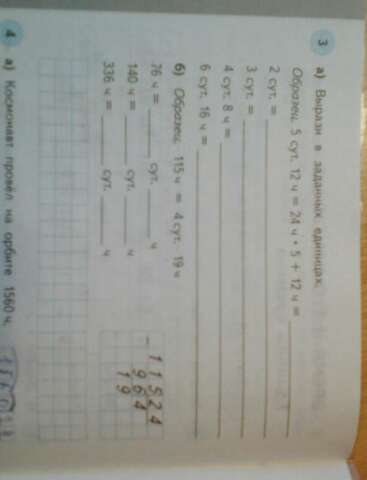 3 а) Вырази в заданных единицах.
Образец. 5 сут. 12 ч = 24 ч • 5 + 12 ч =
2 сут. =
3 сут. =
4 сут. 8 ч =
6 сут. 16 ч =
б) Образец. 115 ч = 4 сут. 19 ч
76 ч = ____ сут. ____ ч
140 ч = ____ сут. ____ ч
336 ч = ____ сут. ____ ч
- 115 24
96 4
19
4 а) Космонавт провёл на орбите 1560 ч.